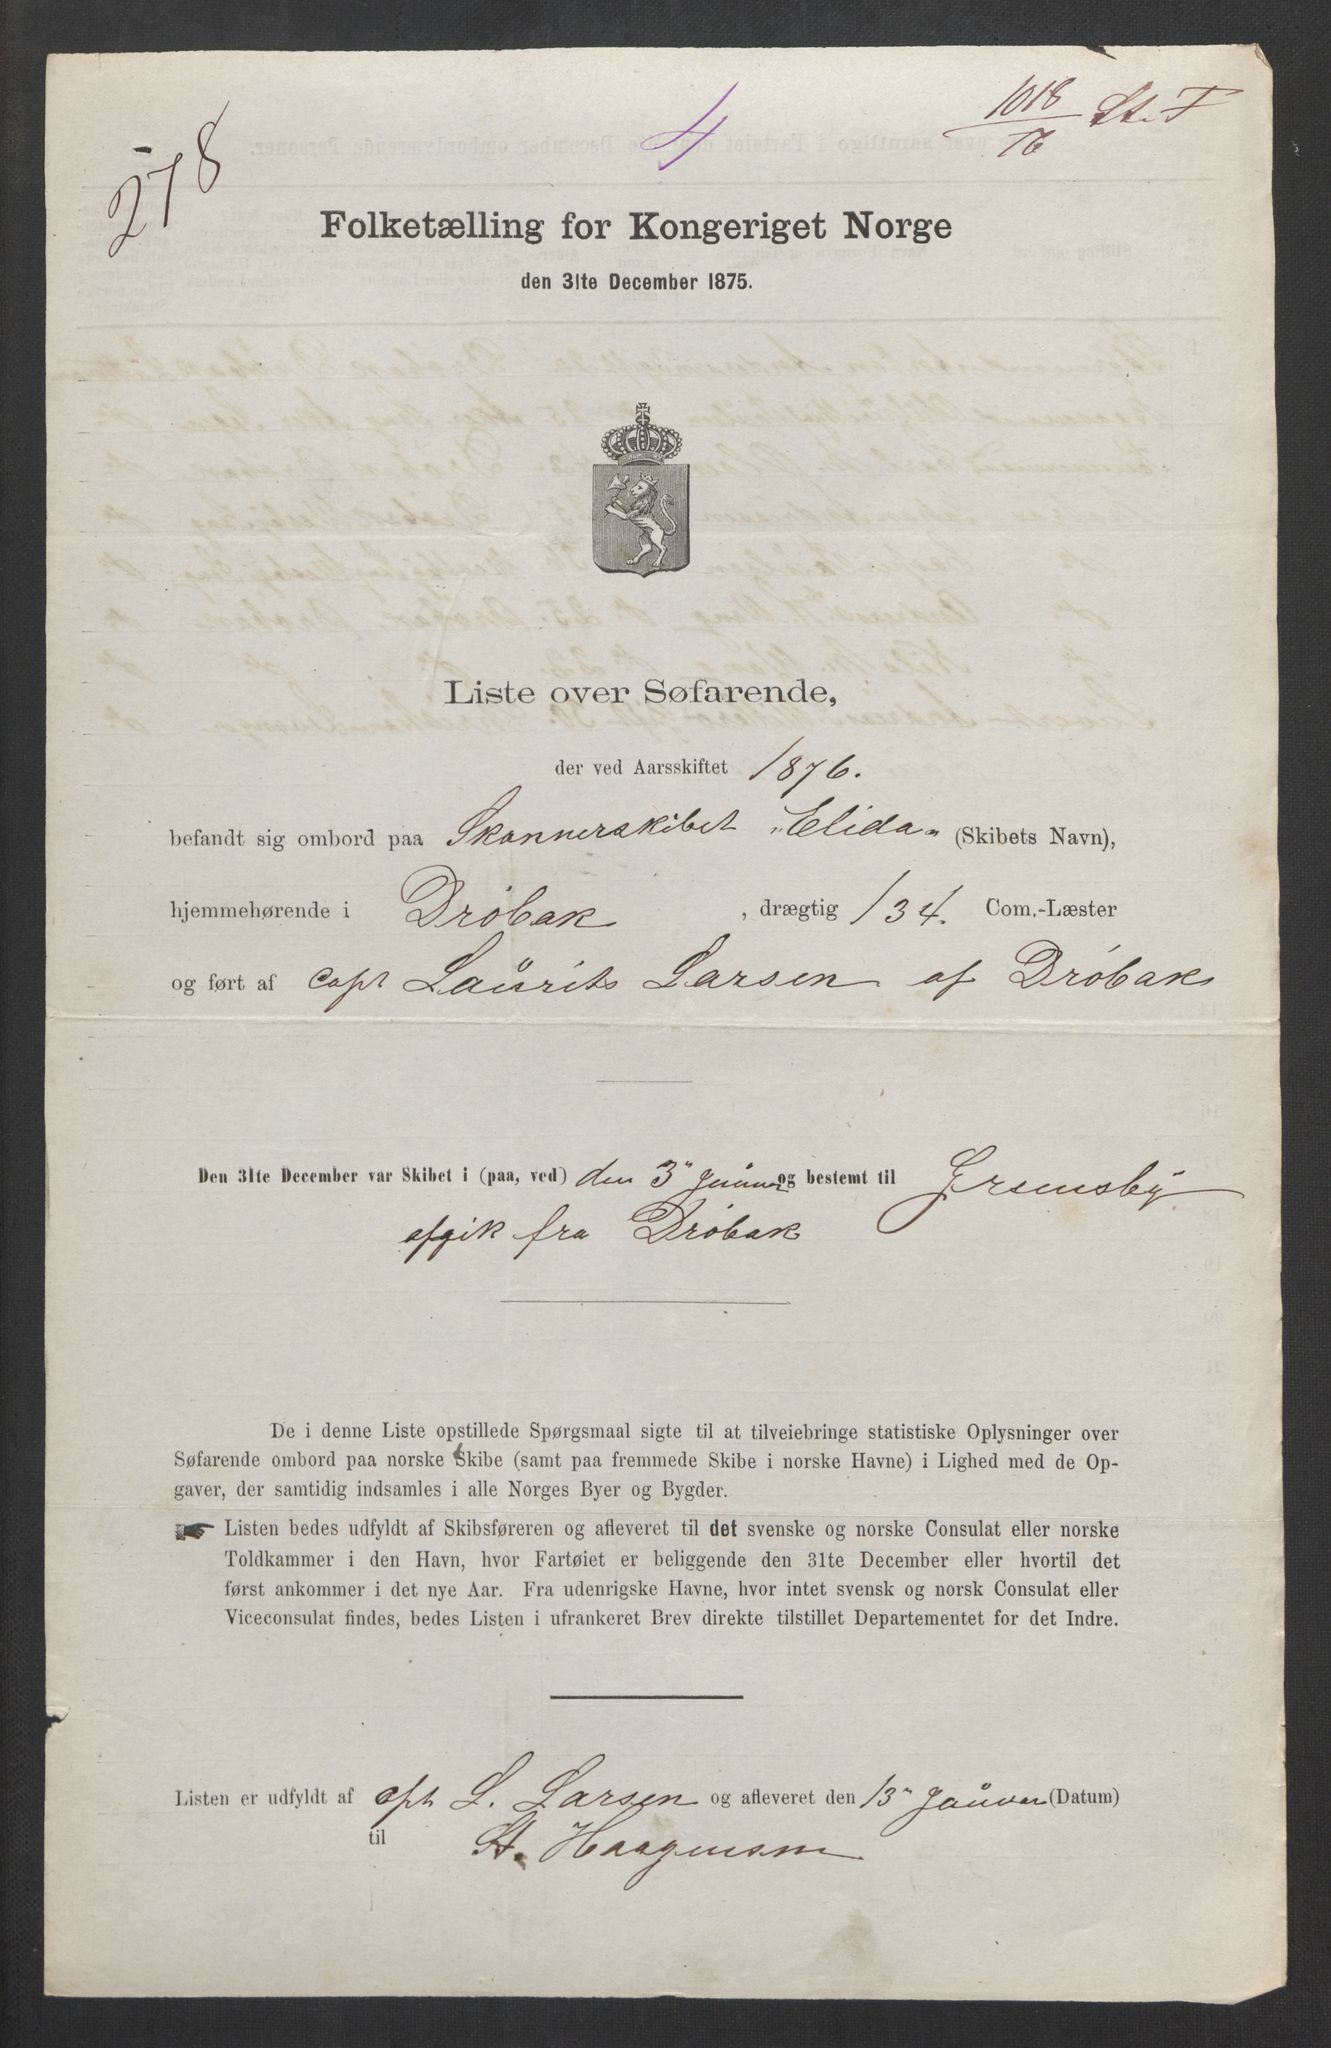 278
4
1018/76 St. F
Folketælling for Kongeriget Norge
den 31te December 1875.
Liste over Søfarende,
der ved Aarsskiftet 1876.
befandt sig ombord paa Skonnerskibet "Elida" (Skibets Navn),
hjemmehørende i Drøbak, drægtig 134. Com.-Læster
og ført af capt Laurits Larsen af Drøbak
Den 31te December var Skibet i (paa, ved) den 3" Januar og bestemt til Gremsby
afgik fra Drøbak
De i denne Liste opstillede Spørgsmaal sigte til at tilveiebringe statistiske Oplysninger over
Søfarende ombord paa norske Skibe (samt paa fremmede Skibe i norske Havne) i Lighed med de Op-
gaver, der samtidig indsamles i alle Norges Byer og Bygder.
Listen bedes udfyldt af Skibsføreren og afleveret til det svenske og norske Consulat eller norske
Toldkammer i den Havn, hvor Fartøiet er beliggende den 31te December eller hvortil det
først ankommer i det nye Aar. Fra udenrigske Havne, hvor intet svensk og norsk Consulat eller
Viceconsulat findes, bedes Listen i ufrankeret Brev direkte tilstillet Departementet for det Indre.
Listen er udfyldt af cpt L. Larsen og afleveret den 13" Januar (Datum)
til St. Haagensen